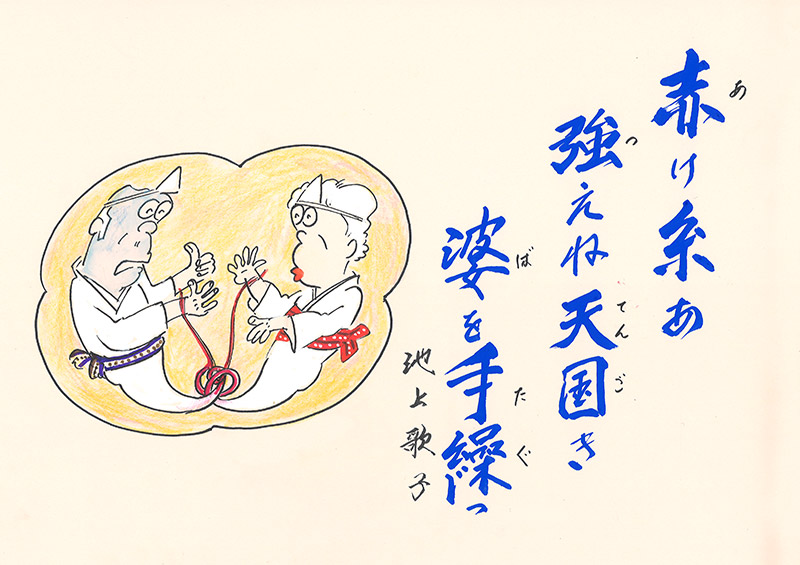 赤け糸あ
あ
強えね天国き
つ てんご
婆を手繰っ
ば たぐ
池上歌子